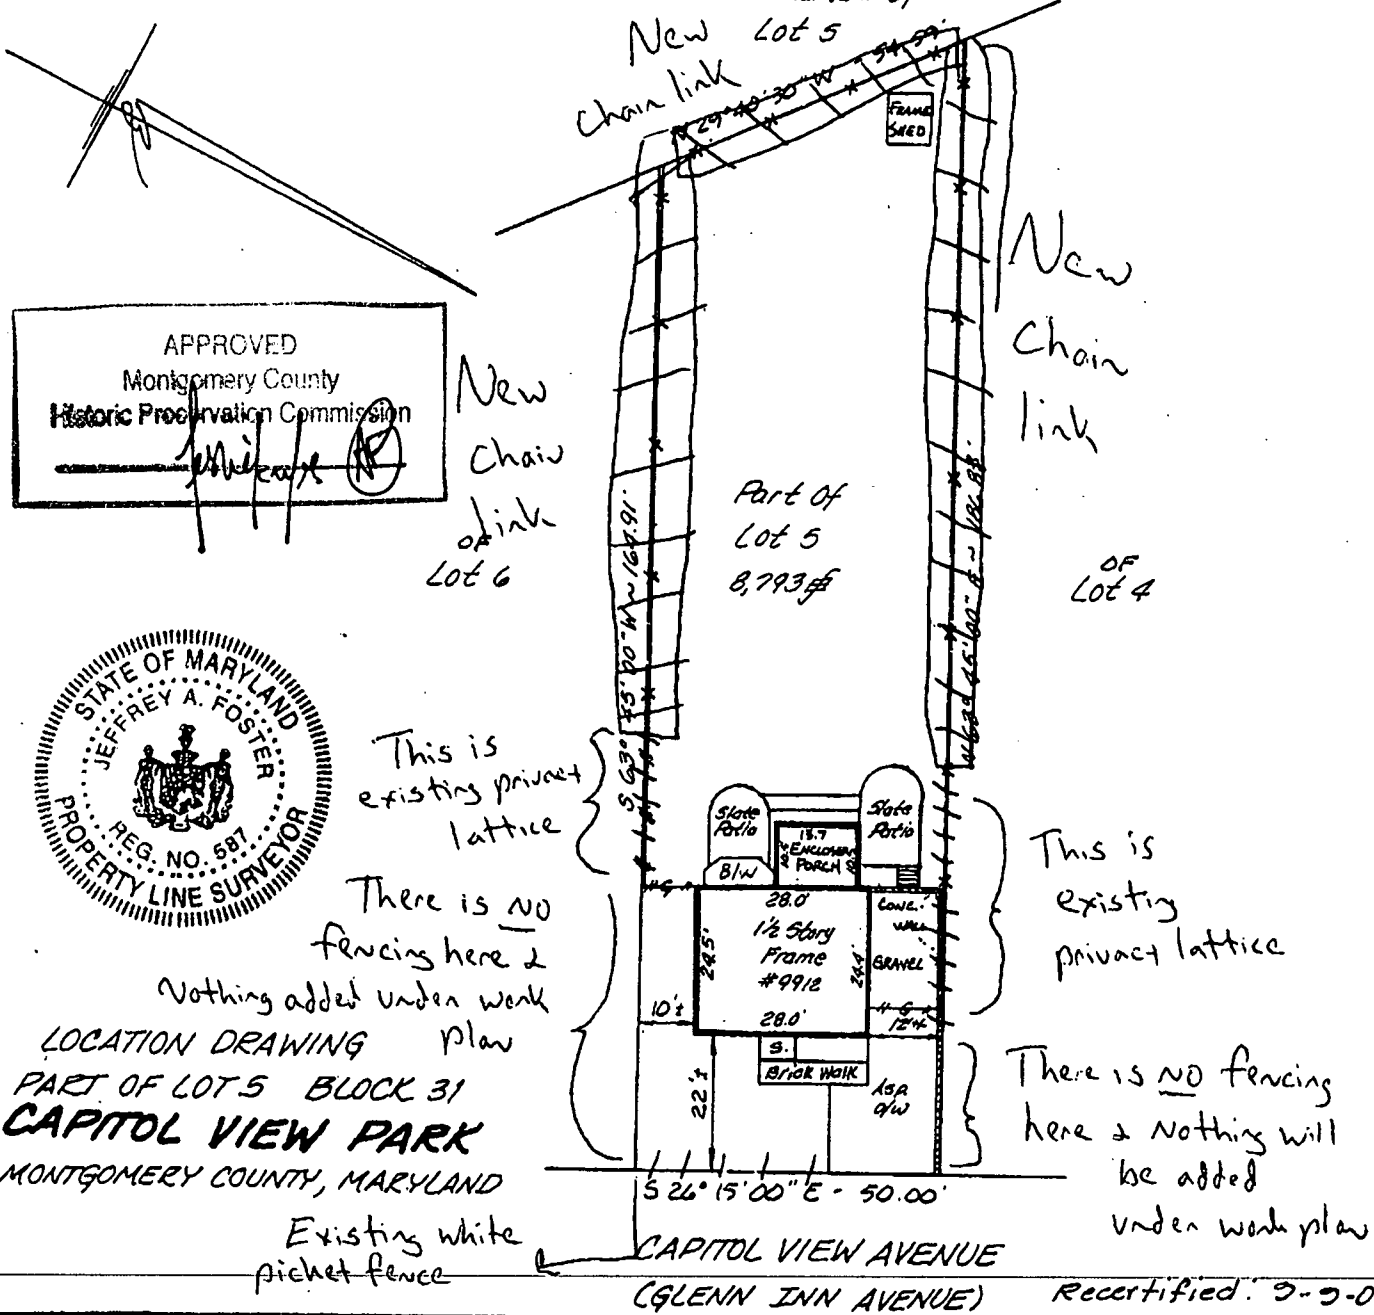 Lot 5
New
chain link
N 29° 40' 30" W - 54.59'
FRAME
SHED
New
Chain
link
APPROVED
Montgomery County
Historic Preservation Commission
New
Chain
link
OF
Lot 6
S 63° 45' 00" W ~ 164.91'
Part Of
Lot 5
8,793
N 63° 45' 00" E ~ 186.88'
OF
Lot 4
STATE OF MARYLAND
JEFFREY A. FOSTER
REG. NO. 587
PROPERTY LINE SURVEYOR
This is
existing privact
lattice
Slate
Patio
Slate
Patio
13.7
ENCLOSED
PORCH
B/W
This is
existing
privact lattice
There is NO
fencing here &
Nothing added under work
plan
28.0'
1½ Story
Frame
#9912
24.5'
24.4'
28.0'
CONC.
WALL
GRAVEL
10'±
12'±
S.
Brick Walk
22'±
ASP.
D/W
There is NO fencing
here & Nothing will
be added
under work plan
LOCATION DRAWING
PART OF LOT 5 BLOCK 31
CAPITOL VIEW PARK
MONTGOMERY COUNTY, MARYLAND
S 26° 15' 00" E - 50.00'
Existing white
picket fence
CAPITOL VIEW AVENUE
(GLENN INN AVENUE)
Recertified: